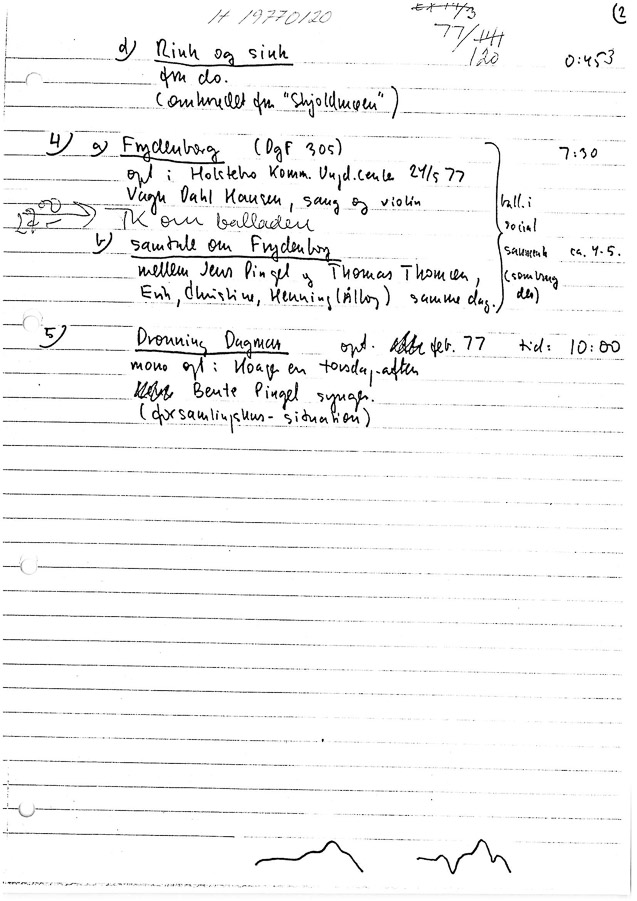 H 19770120
(2
77/
120
d) Rink og sink 0:453
fra do.
(omkredet fra "Skjoldmøen")
4) a) Frydenborg (DgF 305) 7:30
opt i Holstebro Komm. Ungd.center 24/5 77
Vagn Dahl Hansen, sang og violin
27 00 → TK om balladen
b) samtale om Frydenborg
mellem Jens Pingel og Thomas Thomsen,
Erik, Christine, Henning (Alloy) samme dag.
ball. i
social
sammenh ca. 4-5.
5) Dronning Dagmar opt. feb. 77 tid: 10:00
mono opt: Hoager en torsdag-aften
Bente Pingel synger.
(forsamlingshus-situation)